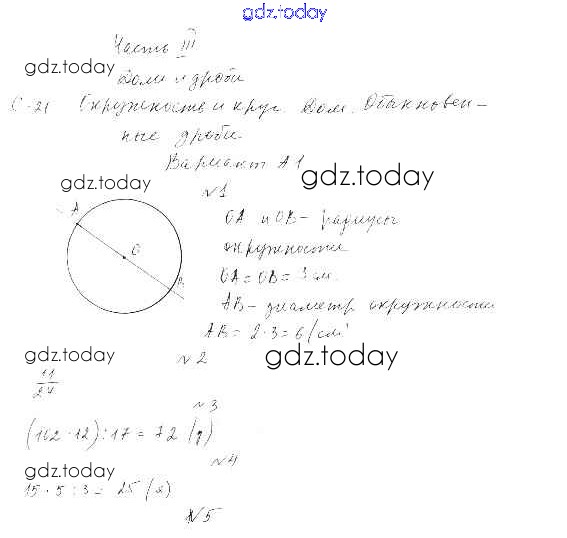 gdz.today
Часть III
gdz.today
Доли и дроби
С-21 Окружность и круг. Доли. Обыкновен-
ные дроби.
Вариант А1
gdz.today
gdz.today
№1
A
O
B
OA и OB - радиусы
окружности
OA = OB = 3 см.
AB - диаметр окружности
AB = 2·3 = 6 (см)
gdz.today
№2
gdz.today
11/24
№3
(102·12):17 = 72 (д)
№4
gdz.today
15·5:3 = 25 (а)
№5